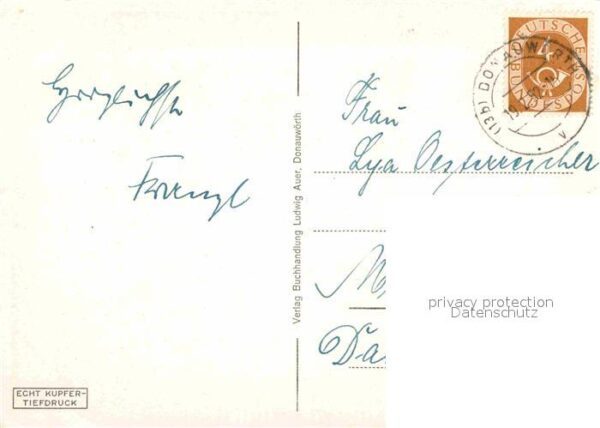 Herzlichst
Franzl
ECHT KUPFER-
TIEFDRUCK
Verlag Buchhandlung Ludwig Auer, Donauwörth
DEUTSCHE
BUNDESPOST
4
(13b) DONAUWÖRTH
Frau
Lya Oesterreicher
privacy protection
Datenschutz